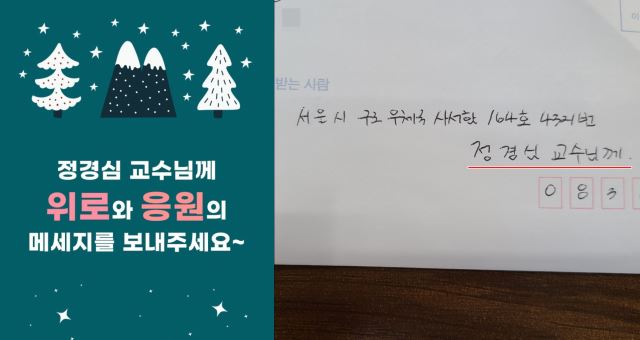 정경심 교수님께
위로와 응원의
메세지를 보내주세요~
받는 사람
서울시 구로우체국 사서함 164호 432번
정경심 교수님께.
0 8 3